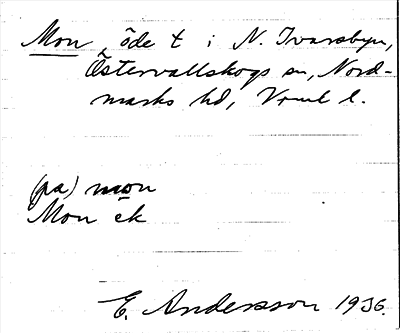 Mon, öde t i N. Ivarsbyn,
Östervallskogs sn, Nord-
marks hd, Vrml l.
(pa) mon
Mon ek
E. Andersson 1936.